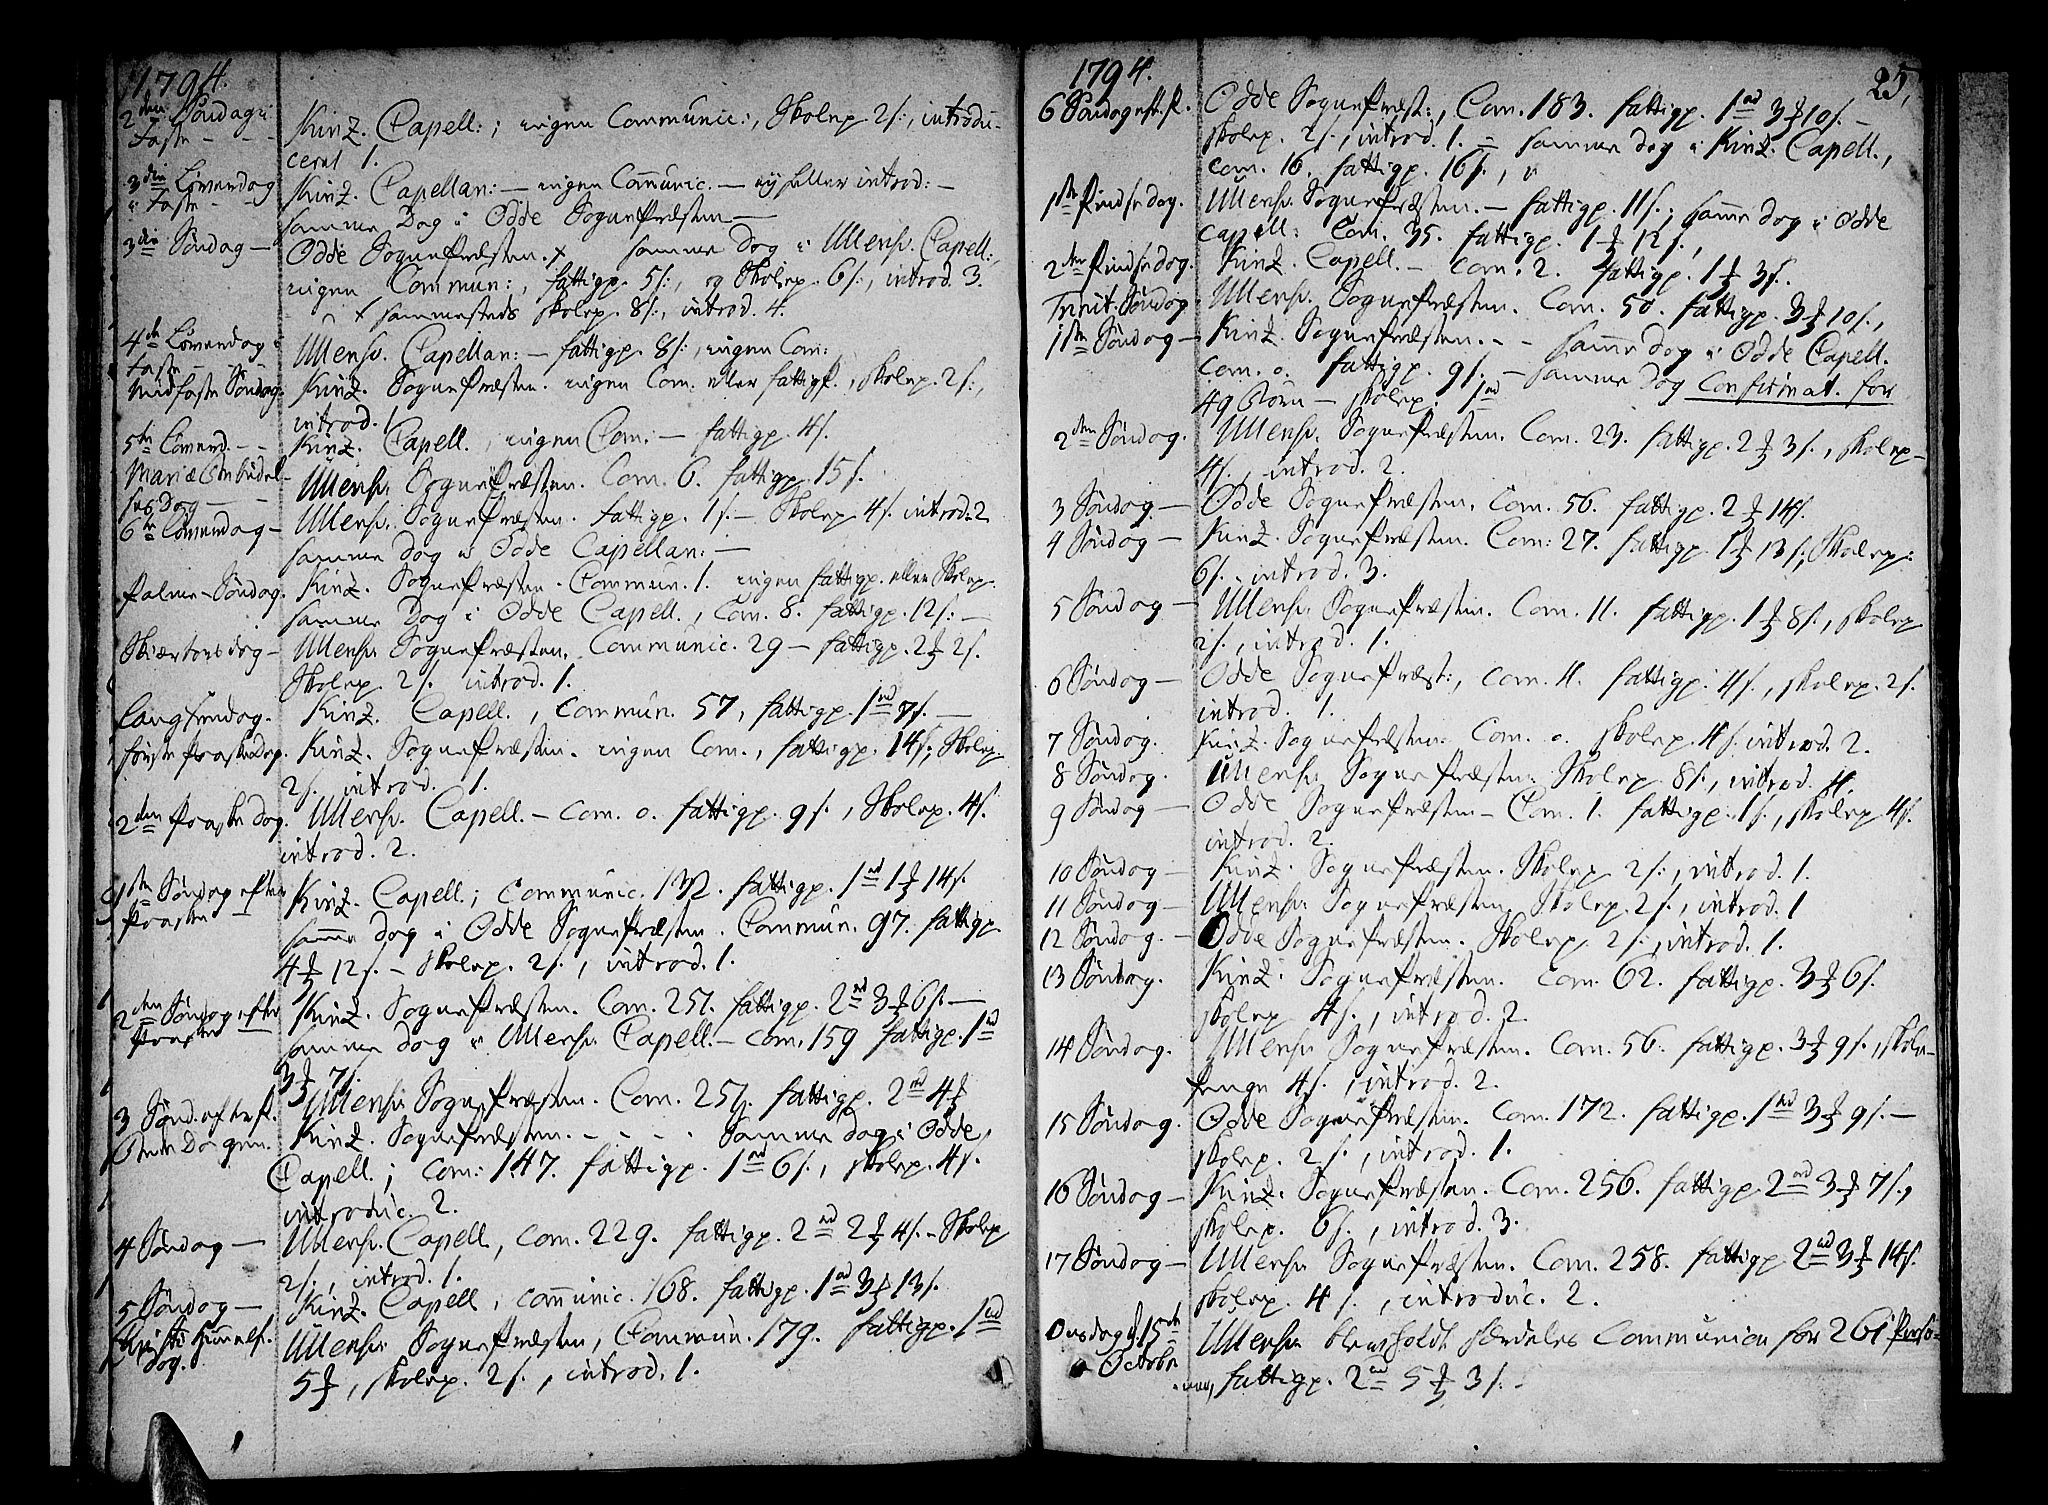 1794.
2den Søndag i
Faste - -
Kinz. Capell:; ingen Communic:, Skolep. 2s:, introdu-
ceret 1.
3die Løverdag
i Faste - -
Kinz. Capellan: — ingen Comunic. — ej heller introd: —
samme Dag i Odde Sognepræsten —
3die Søndag —
Odde Sognepræsten. x samme Dag i Ullensv. Capell:,
ingen Commun:, fattigp. 5s:, og Skolep. 6s:, introd. 3.
x sammesteds skolep. 8s:, introd. 4.
4de Løverdag i
Faste - -
Ullensv. Capellan: — fattigp. 8s:, ingen Com:
Midfaste Søndag.
Kinz. Sognepræsten. ingen Com. eller fattigp., Skolep. 2s:,
introd. 1
5te Løverd. - -
Kinz. Capell., ingen Com: — fattigp. 4s.
Mariæ Bebudel-
ses Dag —
Ullensv. Sognepræsten. Com. 6. fattigp. 15s.
6te Løverdag —
Ullensv. Sognepræsten. fattigp. 1s. — Skolep. 4s. introd: 2
samme Dag i Odde Capellan: —
Palme-Søndag.
Kinz. Sognepræsten. Commun. 1. ingen fattigp. eller Skolep.
samme Dag i Odde Capell., Com. 8. fattigp. 12s: —
Skiærtorsdag —
Ullensv. Sognepræsten. Communic. 29 — fattigp. 2 ₰ 2s.
Skolep. 2s. introd. 1.
Langfredag.
Kinz. Capell., Commun. 57, fattigp. 1rd 7s. —
Første Paaskedag.
Kinz. Sognepræsten. ingen Com., fattigp. 14s:, Skolep.
2s. introd. 1.
2den Paaske Dag.
Ullensv. Capell. — Com. 0. fattigp. 9s., Skolep. 4s.
introd. 2.
1ste Søndag efter
Paaske
Kinz. Capell.; Communic. 132. fattigp. 1rd 1 ₰ 14s.
samme dag i Odde Sognepræsten. Commun. 97. fattigp
4 ₰ 12s. — Skolep. 2s., introd. 1.
2den Søndag efter
Paaske
Kinz. Sognepræsten. Com. 251. fattigp. 2rd 3 ₰ 6s. —
samme dag i Ullensv. Capell. — Com. 159 fattigp. 1rd
3 ₰ 7s.
3 Sønd. efter P.
Ullensv. Sognepræsten. Com. 251. fattigp. 2rd 4 ₰
Bede Dagen.
Kinz. Sognepræsten. - - - - Samme Dag i Odde,
Capell.; Com: 147. fattigp. 1rd 6s., skolep. 4s.
introduc. 2.
4 Søndag —
Ullensv. Capell., Com. 229. fattigp. 2rd 2 ₰ 4s. - Skolep
2s:, introd. 1.
5 Søndag —
Kinz. Capell, communic. 168. fattigp. 1rd 3 ₰ 13s.
Christi Himmelf.
dag.
Ullensv. Sognepræsten, Commun. 179. fattigp. 1rd
5 ₰, skolep. 2s., introd. 1.
1794.
25.
6 Søndag eft. P.
Odde Sognepræst:, Com. 183. fattigp. 1rd 3 ₰ 10s. —
skolep. 2s., introd. 1. = samme dag i Kinz. Capell.,
com. 16. fattigp. 16s.,
1ste Pindsedag.
Ullensv. Sognepræsten. — fattigp. 11s., same dag i Odde
Capell: Com. 35. fattigp. 1 ₰ 12s.,
2den Pindsedag.
Kinz. Capell. — Com. 2. fattigp. 1 ₰ 3s.
Trinit. Søndag
Ullensv. Sognepræsten. Com. 50. fattigp. 3 ₰ 10s.,
1ste Søndag —
Kinz. Sognepræsten. - - samme dag i Odde Capell.
Com. 0. fattigp. 9s. — samme Dag Confirmat. for
49 Børn — skolep. 1rd
2den Søndag.
Ullensv. Sognepræsten. Com. 23. fattigp. 2 ₰ 3s., skolep-
4s., introd. 2.
3 Søndag —
Odde Sognepræsten. Com. 56. fattigp. 2 ₰ 14s.
4 Søndag —
Kinz. Sognepræsten. Com: 27. fattigp. 1 ₰ 13s., Skolep:
6s., introd. 3.
5 Søndag —
Ullensv. Sognepræsten. Com. 11. fattigp. 1 ₰ 8s., skolep
2s., introd. 1.
6 Søndag —
Odde Sognepræst:, com. 11. fattigp. 4s., skolep. 2s.
introd. 1.
7 Søndag.
Kinz. Sognepræsten. Com. 0. skolep. 4s. introd. 2.
8 Søndag.
Ullensv. Sognepræsten. Skolep. 8s., introd. 4.
9 Søndag —
Odde Sognepræsten — Com. 1. fattigp. 1s., skolep. 4s.
introd. 2.
10 Søndag —
Kinz. Sognepræsten. Skolep. 2s:, introd. 1.
11 Søndag —
Ullensv. Sognepræsten. Skolep. 2s., introd. 1
12 Søndag. —
Odde Sognepræsten. Skolep. 2s., introd. 1.
13 Søndag.
Kinz. Sognepræsten. Com. 62. fattigp. 3 ₰ 6s.
skolep. 4s., introd. 2.
14 Søndag.
Ullensv. Sognepræsten. Com. 56. fattigp. 3 ₰ 9s., skole-
penge 4s., introd. 2.
15 Søndag.
Odde Sognepræsten. Com. 172. fattigp. 1rd 3 ₰ 9s. —
skolep. 2s., introd. 1.
16 Søndag —
Kinz. Sognepræsten. Com. 256. fattigp. 2rd 3 ₰ 7s.,
skolep. 6s., introd. 3.
17 Søndag —
Ullensv. Sognepræsten. Com. 258. fattigp 2rd 3 ₰ 14s.
skolep. 4s., introduc. 2.
Onsdag d. 15de
Octobr.
Ullensv. blev holdt særdeles Communion for 261 Perso-
ner, fattigp. 2rd 5 ₰ 3s. -